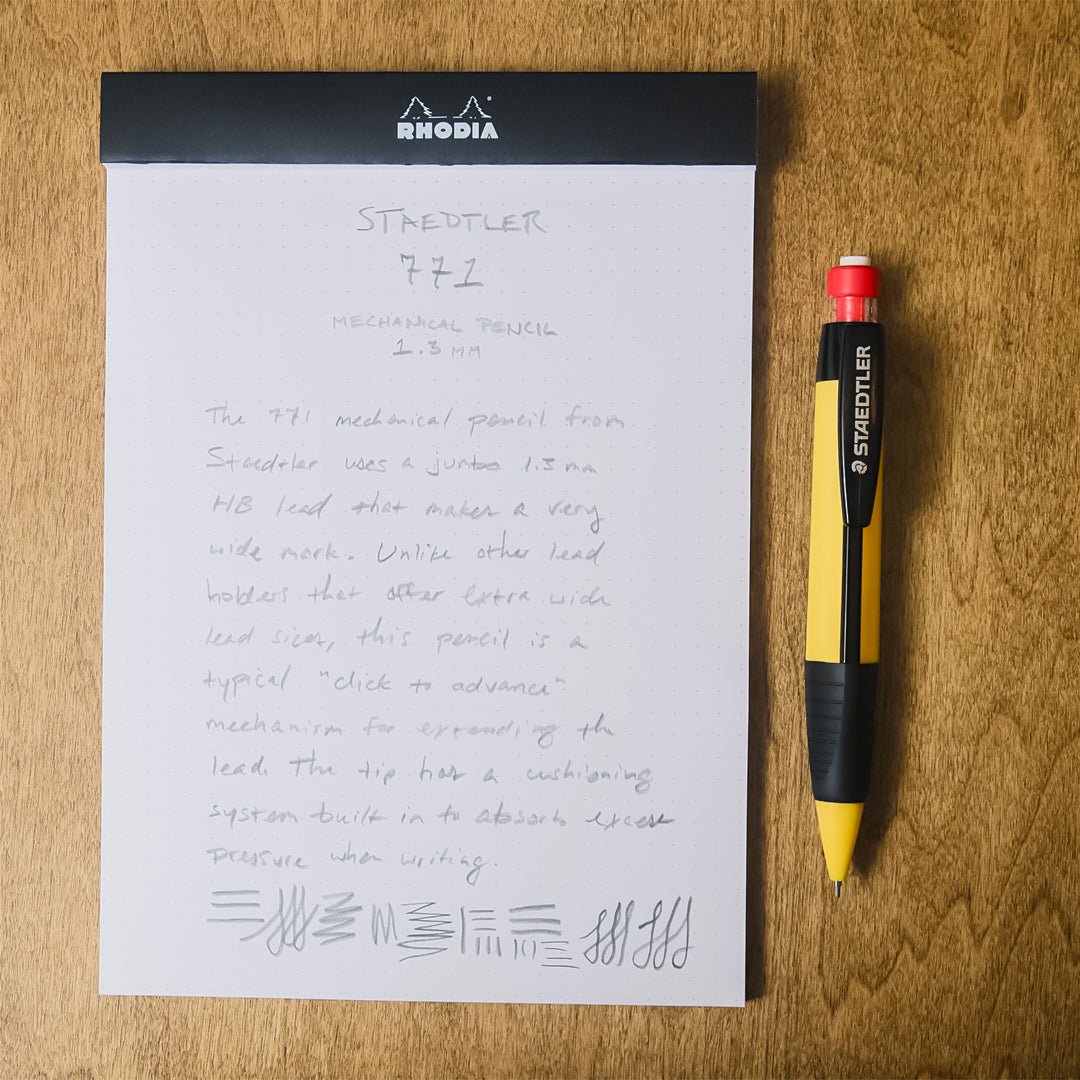 RHODIA
STAEDTLER
771
MECHANICAL PENCIL
1.3 MM
The 771 mechanical pencil from
Staedtler uses a jumbo 1.3 mm
HB lead that makes a very
wide mark. Unlike other lead
holders that offer extra wide
lead sizes, this pencil is a
typical "click to advance"
mechanism for extending the
lead. The tip has a cushioning
system built in to absorb excess
pressure when writing.
STAEDTLER